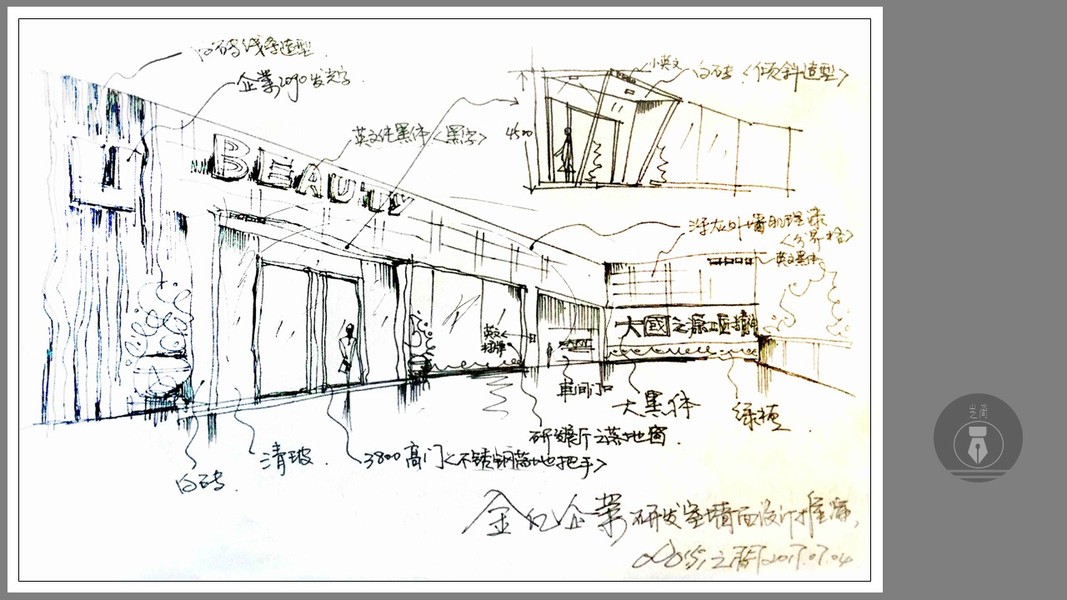 白砖线条造型
企業logo发光字
小英文
白砖<倾斜造型>
英文伫黑体<黑字>
4500
BEAUTY
深灰外墙的理漆
<分界格>
英文黑体
英文
招牌
大國之源
車间门口
大黑体
绿植
研发厅之落地窗.
清玻.
3800高门<不锈钢落地把手>
白砖.
金亿企業研发室墙面设计推演.
2017.07.04